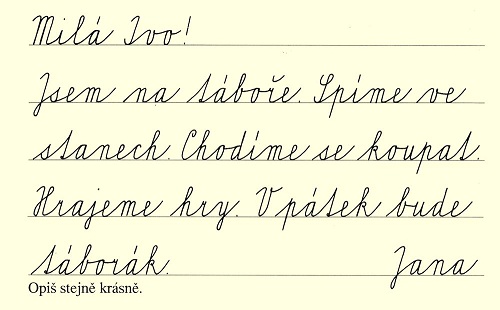 Milá Ivo!
Jsem na táboře. Spíme ve
stanech. Chodíme se koupat.
Hrajeme hry. V pátek bude
táborák. Jana
Opiš stejně krásně.